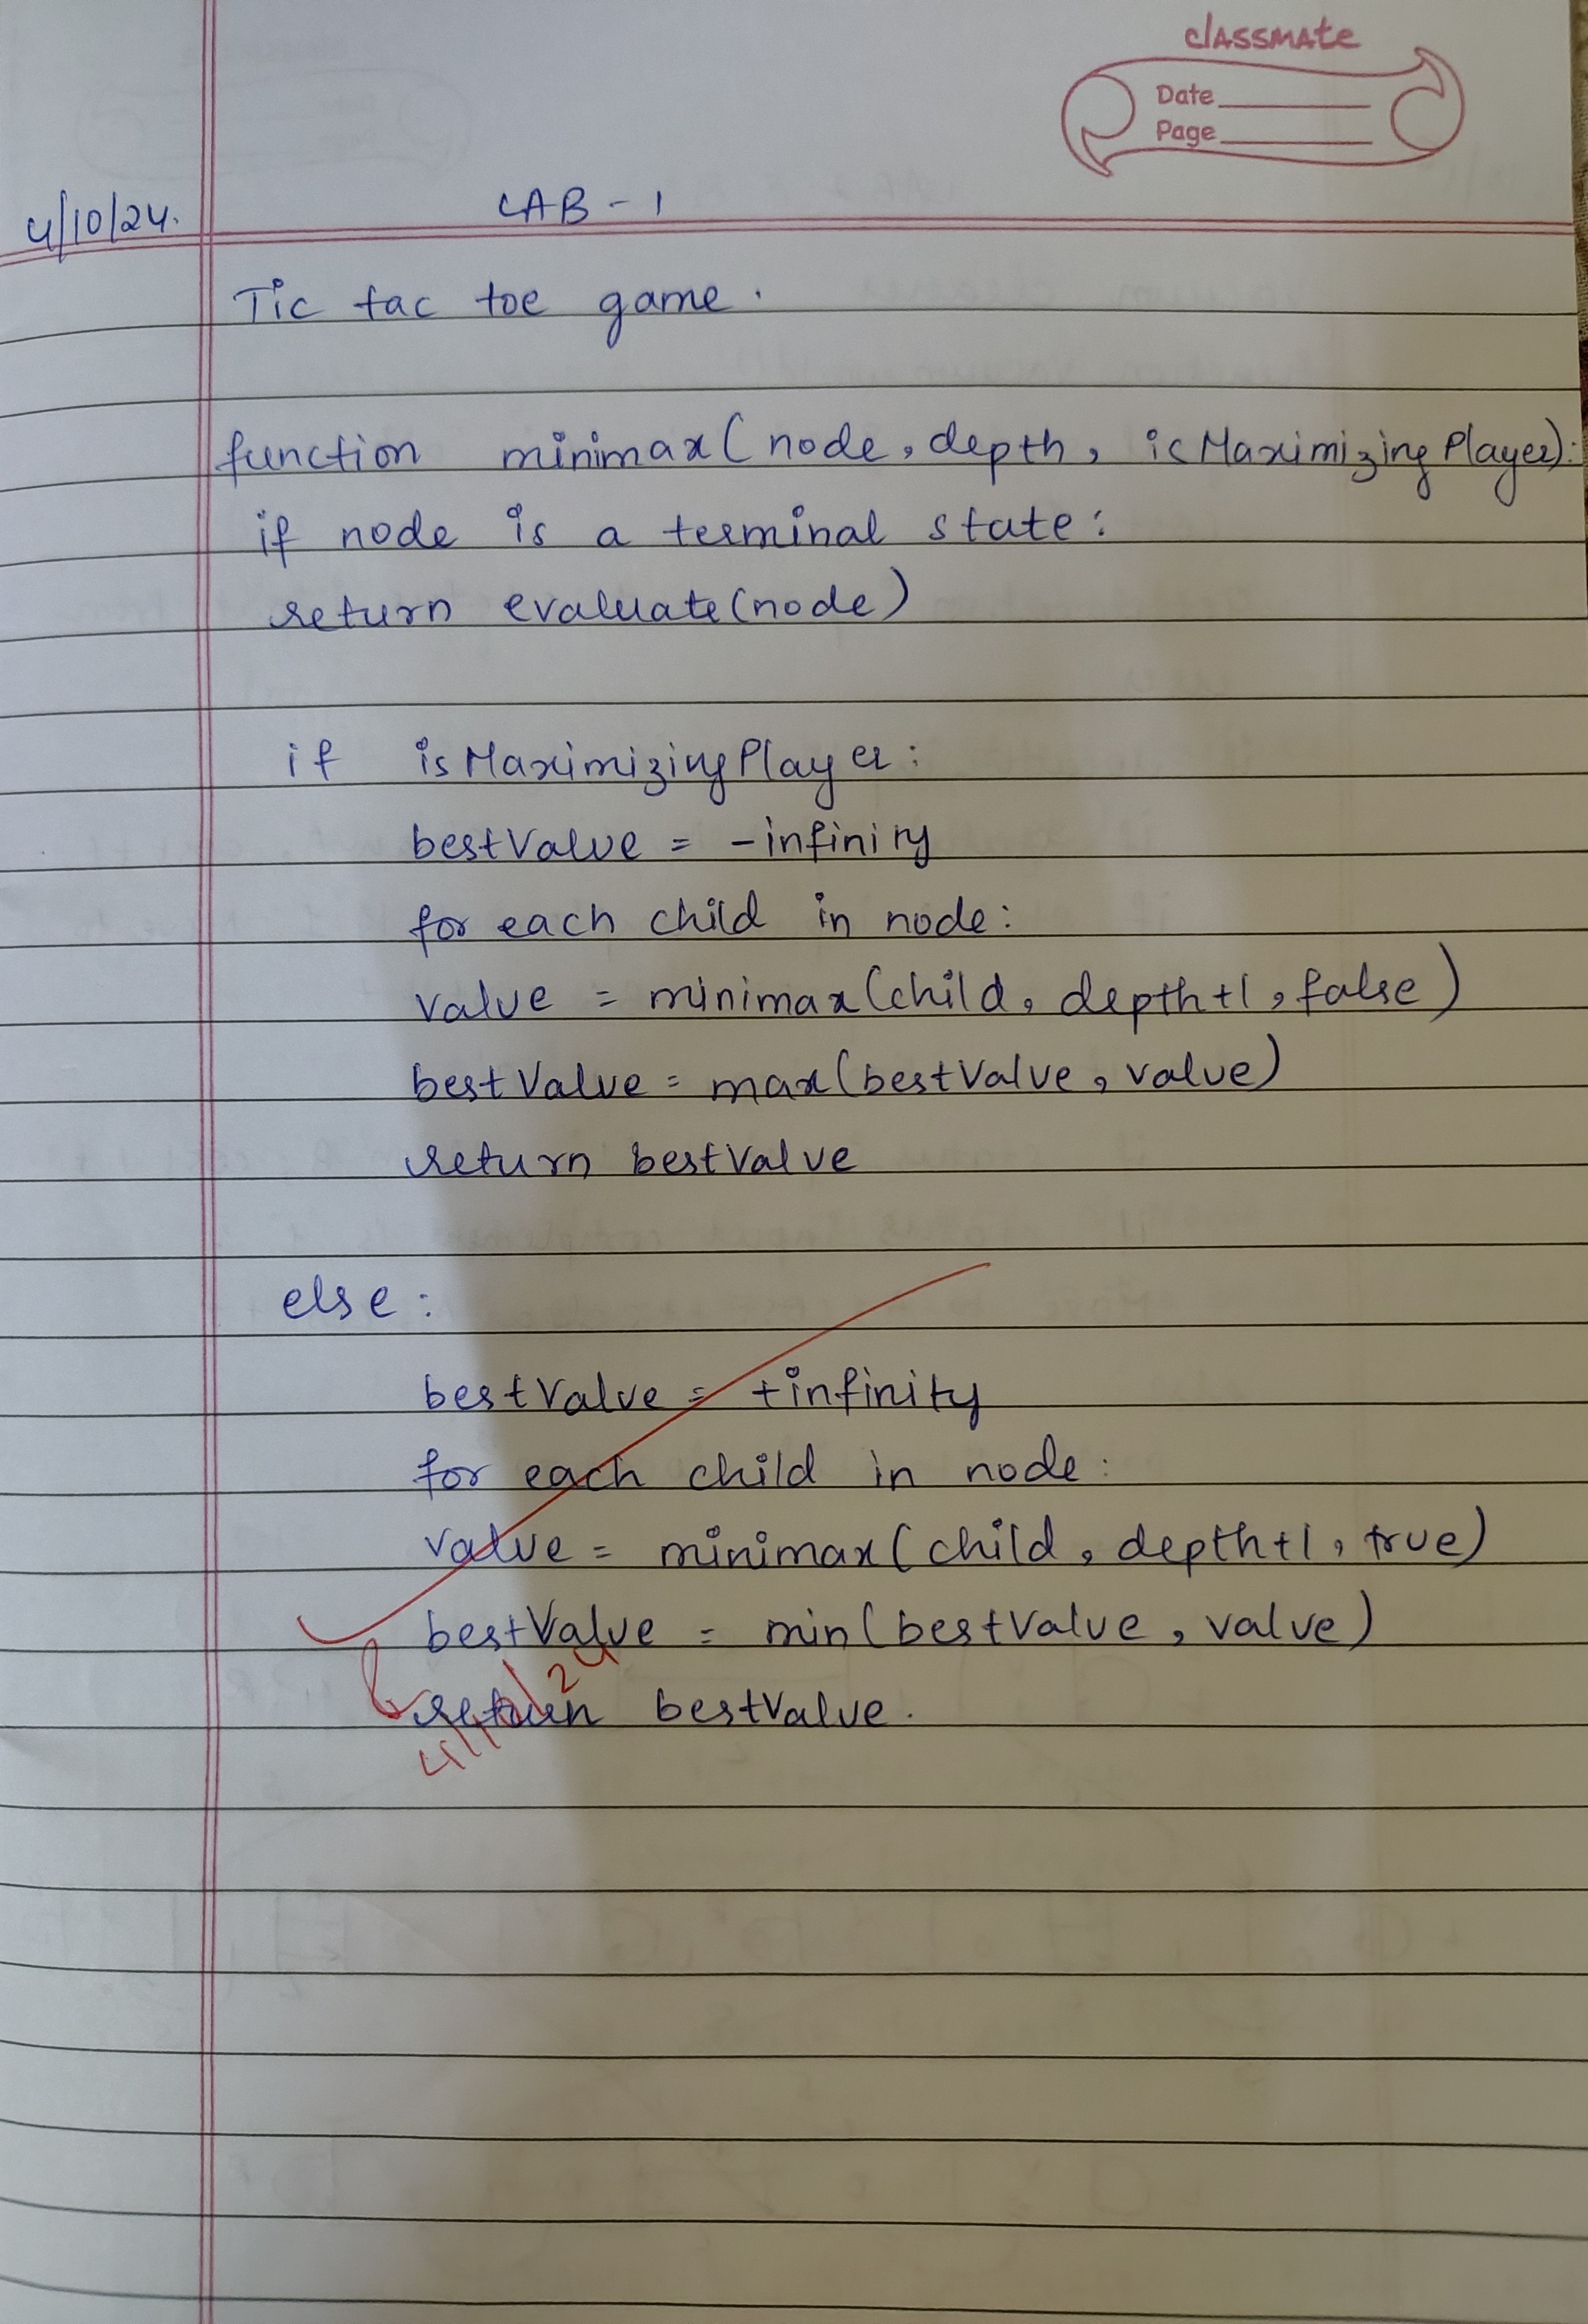 classmate
Date
Page
4/10/24.
LAB - 1
Tic tac toe game.
function minimax(node, depth, isMaximizingPlayer):
if node is a terminal state:
return evaluate(node)
if isMaximizingPlayer:
bestValue = -infinity
for each child in node:
value = minimax(child, depth+1, false)
bestValue = max(bestValue, value)
return bestValue
else:
bestValue = +infinity
for each child in node:
value = minimax(child, depth+1, true)
bestValue = min(bestValue, value)
return bestValue.
4/10/24